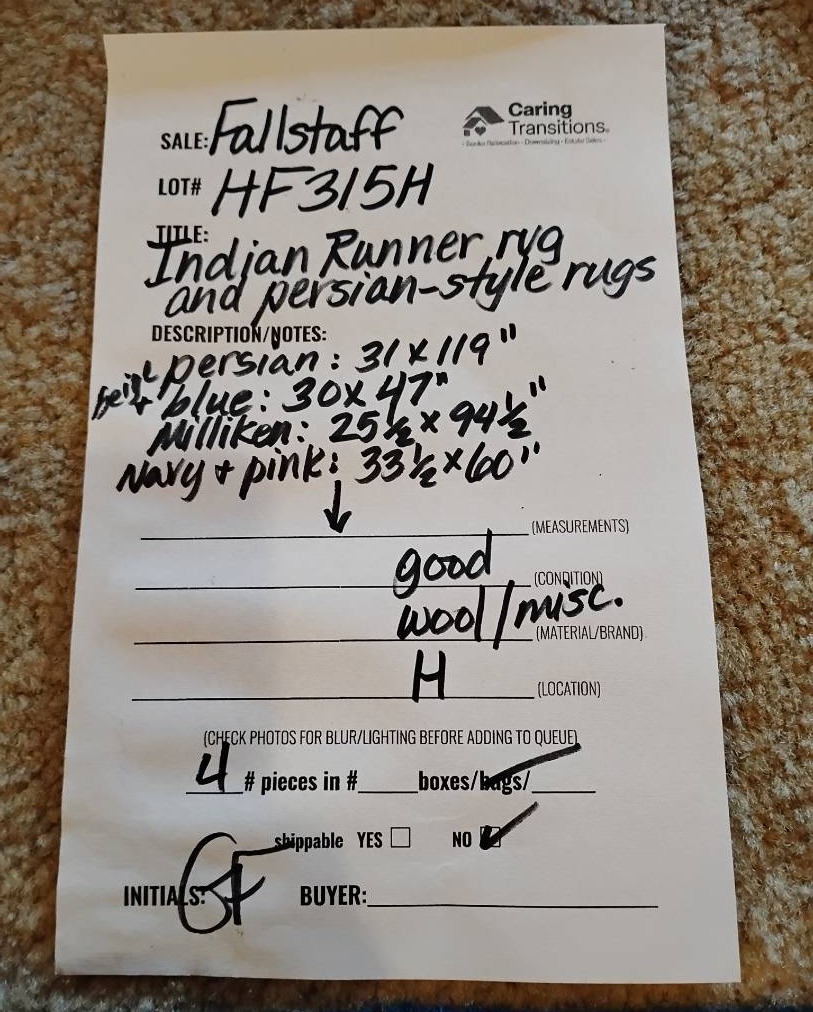 Caring
Transitions.
- Senior Relocation - Downsizing - Estate Sales -
SALE: Fallstaff
LOT# HF315H
TITLE:
Indian Runner rug
and persian-style rugs
DESCRIPTION/NOTES:
persian: 31x119"
+ blue: 30x47"
Milliken: 25 1/2 x 94 1/2"
Navy + pink: 33 1/2 x 60"
(MEASUREMENTS)
good (CONDITION)
wool/misc. (MATERIAL/BRAND)
H (LOCATION)
(CHECK PHOTOS FOR BLUR/LIGHTING BEFORE ADDING TO QUEUE)
4 # pieces in # boxes/bags/
shippable YES NO
INITIALS: GF BUYER: